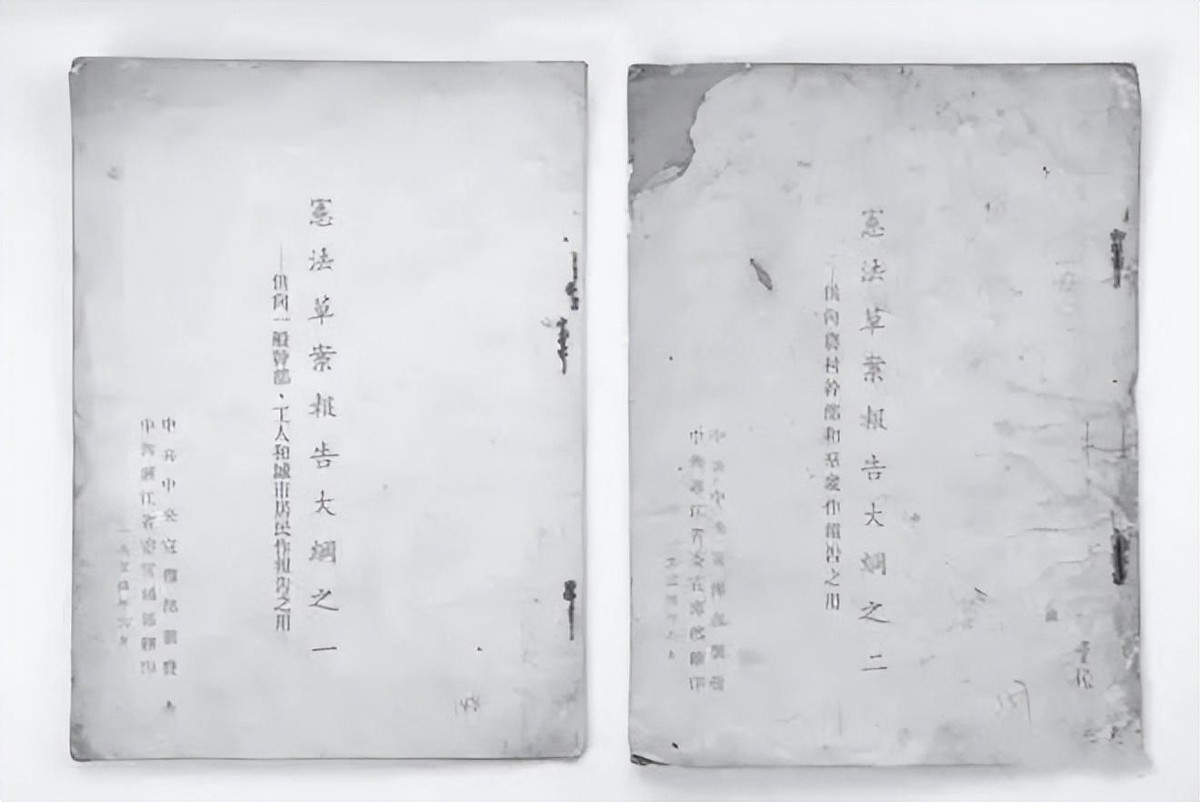 憲法草案報告大綱之一
——供向一般幹部、工人和城市居民作報告之用
中共中央宣傳部
中共浙江省委宣傳部翻印
一九五四年六月
憲法草案報告大綱之二
——供向農村幹部和羣衆作報告之用
中共中央宣傳部
中共浙江省委宣傳部翻印